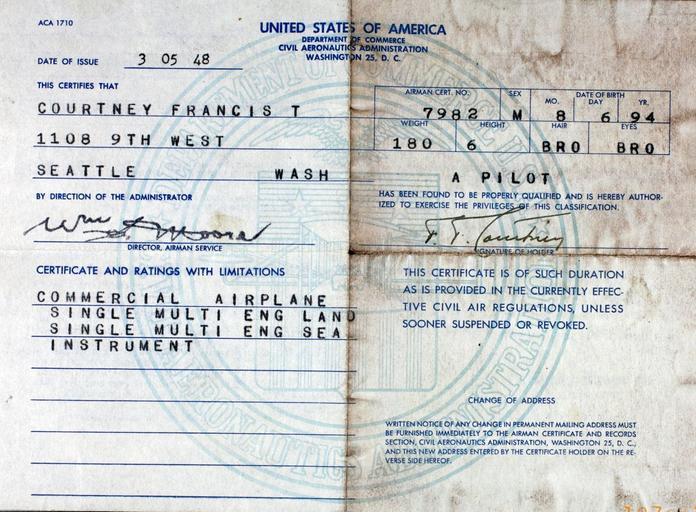 ACA 1710
UNITED STATES OF AMERICA
DEPARTMENT OF COMMERCE
CIVIL AERONAUTICS ADMINISTRATION
WASHINGTON 25, D. C.
DATE OF ISSUE 3 05 48
THIS CERTIFIES THAT
COURTNEY FRANCIS T
1108 9TH WEST
SEATTLE WASH
BY DIRECTION OF THE ADMINISTRATOR
Wm S Moore
DIRECTOR, AIRMAN SERVICE
CERTIFICATE AND RATINGS WITH LIMITATIONS
COMMERCIAL AIRPLANE
SINGLE MULTI ENG LAND
SINGLE MULTI ENG SEA
INSTRUMENT
AIRMAN CERT. NO. SEX DATE OF BIRTH
MO. DAY YR.
7982 M 8 6 94
WEIGHT HEIGHT HAIR EYES
180 6 BRO BRO
A PILOT
HAS BEEN FOUND TO BE PROPERLY QUALIFIED AND IS HEREBY AUTHOR-
IZED TO EXERCISE THE PRIVILEGES OF THIS CLASSIFICATION.
F. T. Courtney
SIGNATURE OF HOLDER
THIS CERTIFICATE IS OF SUCH DURATION
AS IS PROVIDED IN THE CURRENTLY EFFEC-
TIVE CIVIL AIR REGULATIONS, UNLESS
SOONER SUSPENDED OR REVOKED.
CHANGE OF ADDRESS
WRITTEN NOTICE OF ANY CHANGE IN PERMANENT MAILING ADDRESS MUST
BE FURNISHED IMMEDIATELY TO THE AIRMAN CERTIFICATE AND RECORDS
SECTION, CIVIL AERONAUTICS ADMINISTRATION, WASHINGTON 25, D. C.,
AND THIS NEW ADDRESS ENTERED BY THE CERTIFICATE HOLDER ON THE RE-
VERSE SIDE HEREOF.